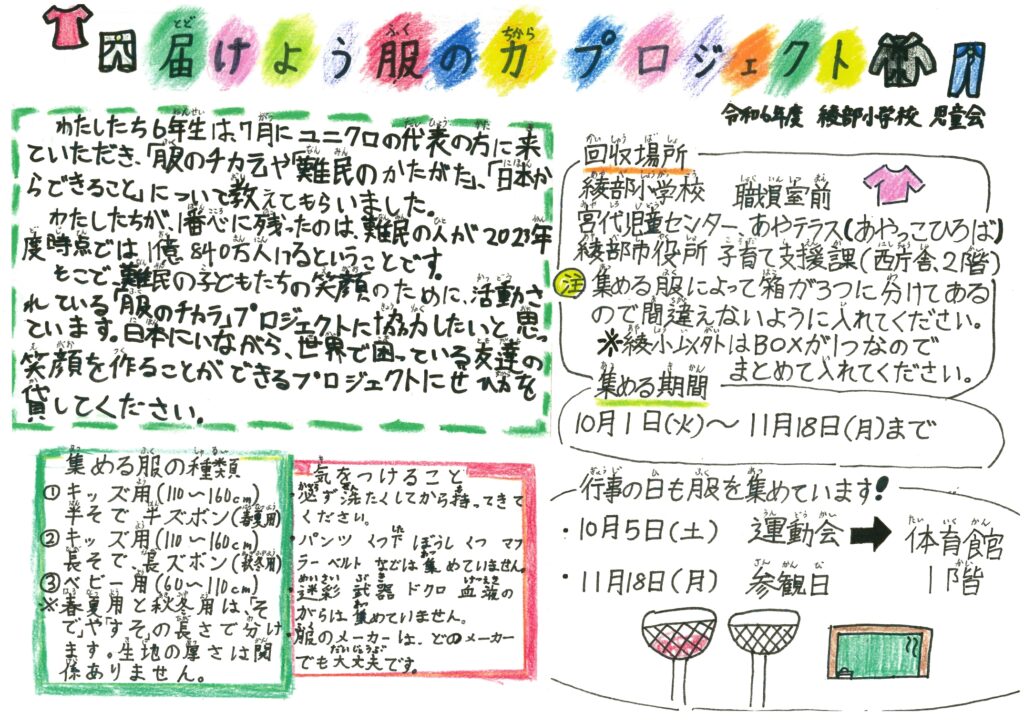 届けよう服の力プロジェクト
令和6年度 綾部小学校 児童会
わたしたち6年生は、7月にユニクロの代表の方に来
ていただき、「服のチカラ」や「難民のかたがた」、「日本か
らできること」について教えてもらいました。
わたしたちが、1番心に残ったのは、難民の人が2023年
度時点では、1億840万人いるということです。
そこで、難民の子どもたちの笑顔のために、活動さ
れている「服のチカラ」プロジェクトに協力したいと思っ
ています。日本にいながら、世界で困っている友達の
笑顔を作ることができるプロジェクトにぜひ力を
貸してください。
回収場所
綾部小学校 職員室前
宮代児童センター、あやテラス(あやっこひろば)
綾部市役所 子育て支援課(西庁舎、2階)
注 集める服によって箱が3つに分けてある
ので間違えないように入れてください。
※綾小以外はBOXが1つなので
まとめて入れてください。
集める期間
10月1日(火)〜11月18日(月)まで
集める服の種類
① キッズ用(110〜160cm)
半そで 半ズボン(春夏用)
② キッズ用(110〜160cm)
長そで、長ズボン(秋冬用)
③ ベビー用(60〜110cm)
※春夏用と秋冬用は、「そ
で」や「すそ」の長さで分け
ます。生地の厚さは関
係ありません。
気をつけること
・必ず洗たくしてから持ってきて
ください。
・パンツ くつ下 ぼうし くつ マフ
ラー ベルト などは集めていません。
・迷彩 武器 ドクロ 血液の
がらは集めていません。
・服のメーカーは、どのメーカー
でも大丈夫です。
行事の日も服を集めています!
・10月5日(土) 運動会 ➡ 体育館
1階
・11月18日(月) 参観日